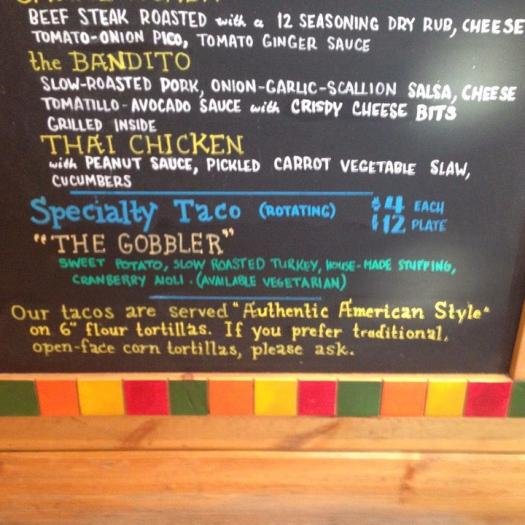 BEEF STEAK ROASTED with a 12 SEASONING DRY RUB, CHEESE
TOMATO-ONION PICO, TOMATO GINGER SAUCE
the BANDITO
SLOW-ROASTED PORK, ONION-GARLIC-SCALLION SALSA, CHEESE
TOMATILLO-AVOCADO SAUCE with CRISPY CHEESE BITS
GRILLED INSIDE
THAI CHICKEN
with PEANUT SAUCE, PICKLED CARROT VEGETABLE SLAW,
CUCUMBERS
Specialty Taco (ROTATING) $4 EACH
$12 PLATE
"THE GOBBLER"
SWEET POTATO, SLOW ROASTED TURKEY, HOUSE-MADE STUFFING,
CRANBERRY AIOLI. (AVAILABLE VEGETARIAN)
Our tacos are served "Authentic American Style"
on 6" flour tortillas. If you prefer traditional,
open-face corn tortillas, please ask.